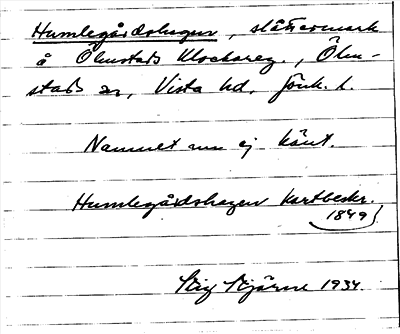 Humlegårdshagen, slåttermark
å Ölmstads Klockareg., Ölm-
stads sn, Vista hd, Jönk. l.
Namnet nu ej känt.
Humlegårdshagen Kartbeskr.
1849
Stig Stjärne 1934.